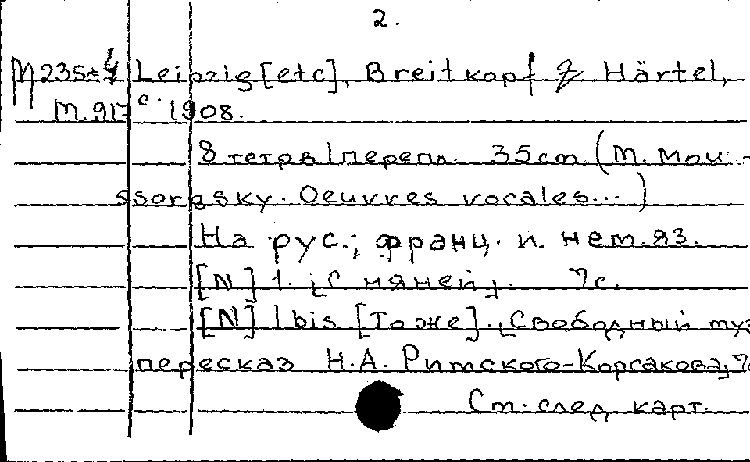 2.
M235-4 Leipzig [etc], Breitkopf & Härtel,
m.917 c. 1908.
8 тетр в 1 перепл. 35cm (M. Mou-
ssorgsky. Oeuvres vocales...)
На рус.; франц. и нем.яз.
[N] 1. [С няней]. 7с.
[N] 1 bis [То же]. [Свободный муз
пересказ Н.А. Римского-Корсакова] 7с
См. след карт.